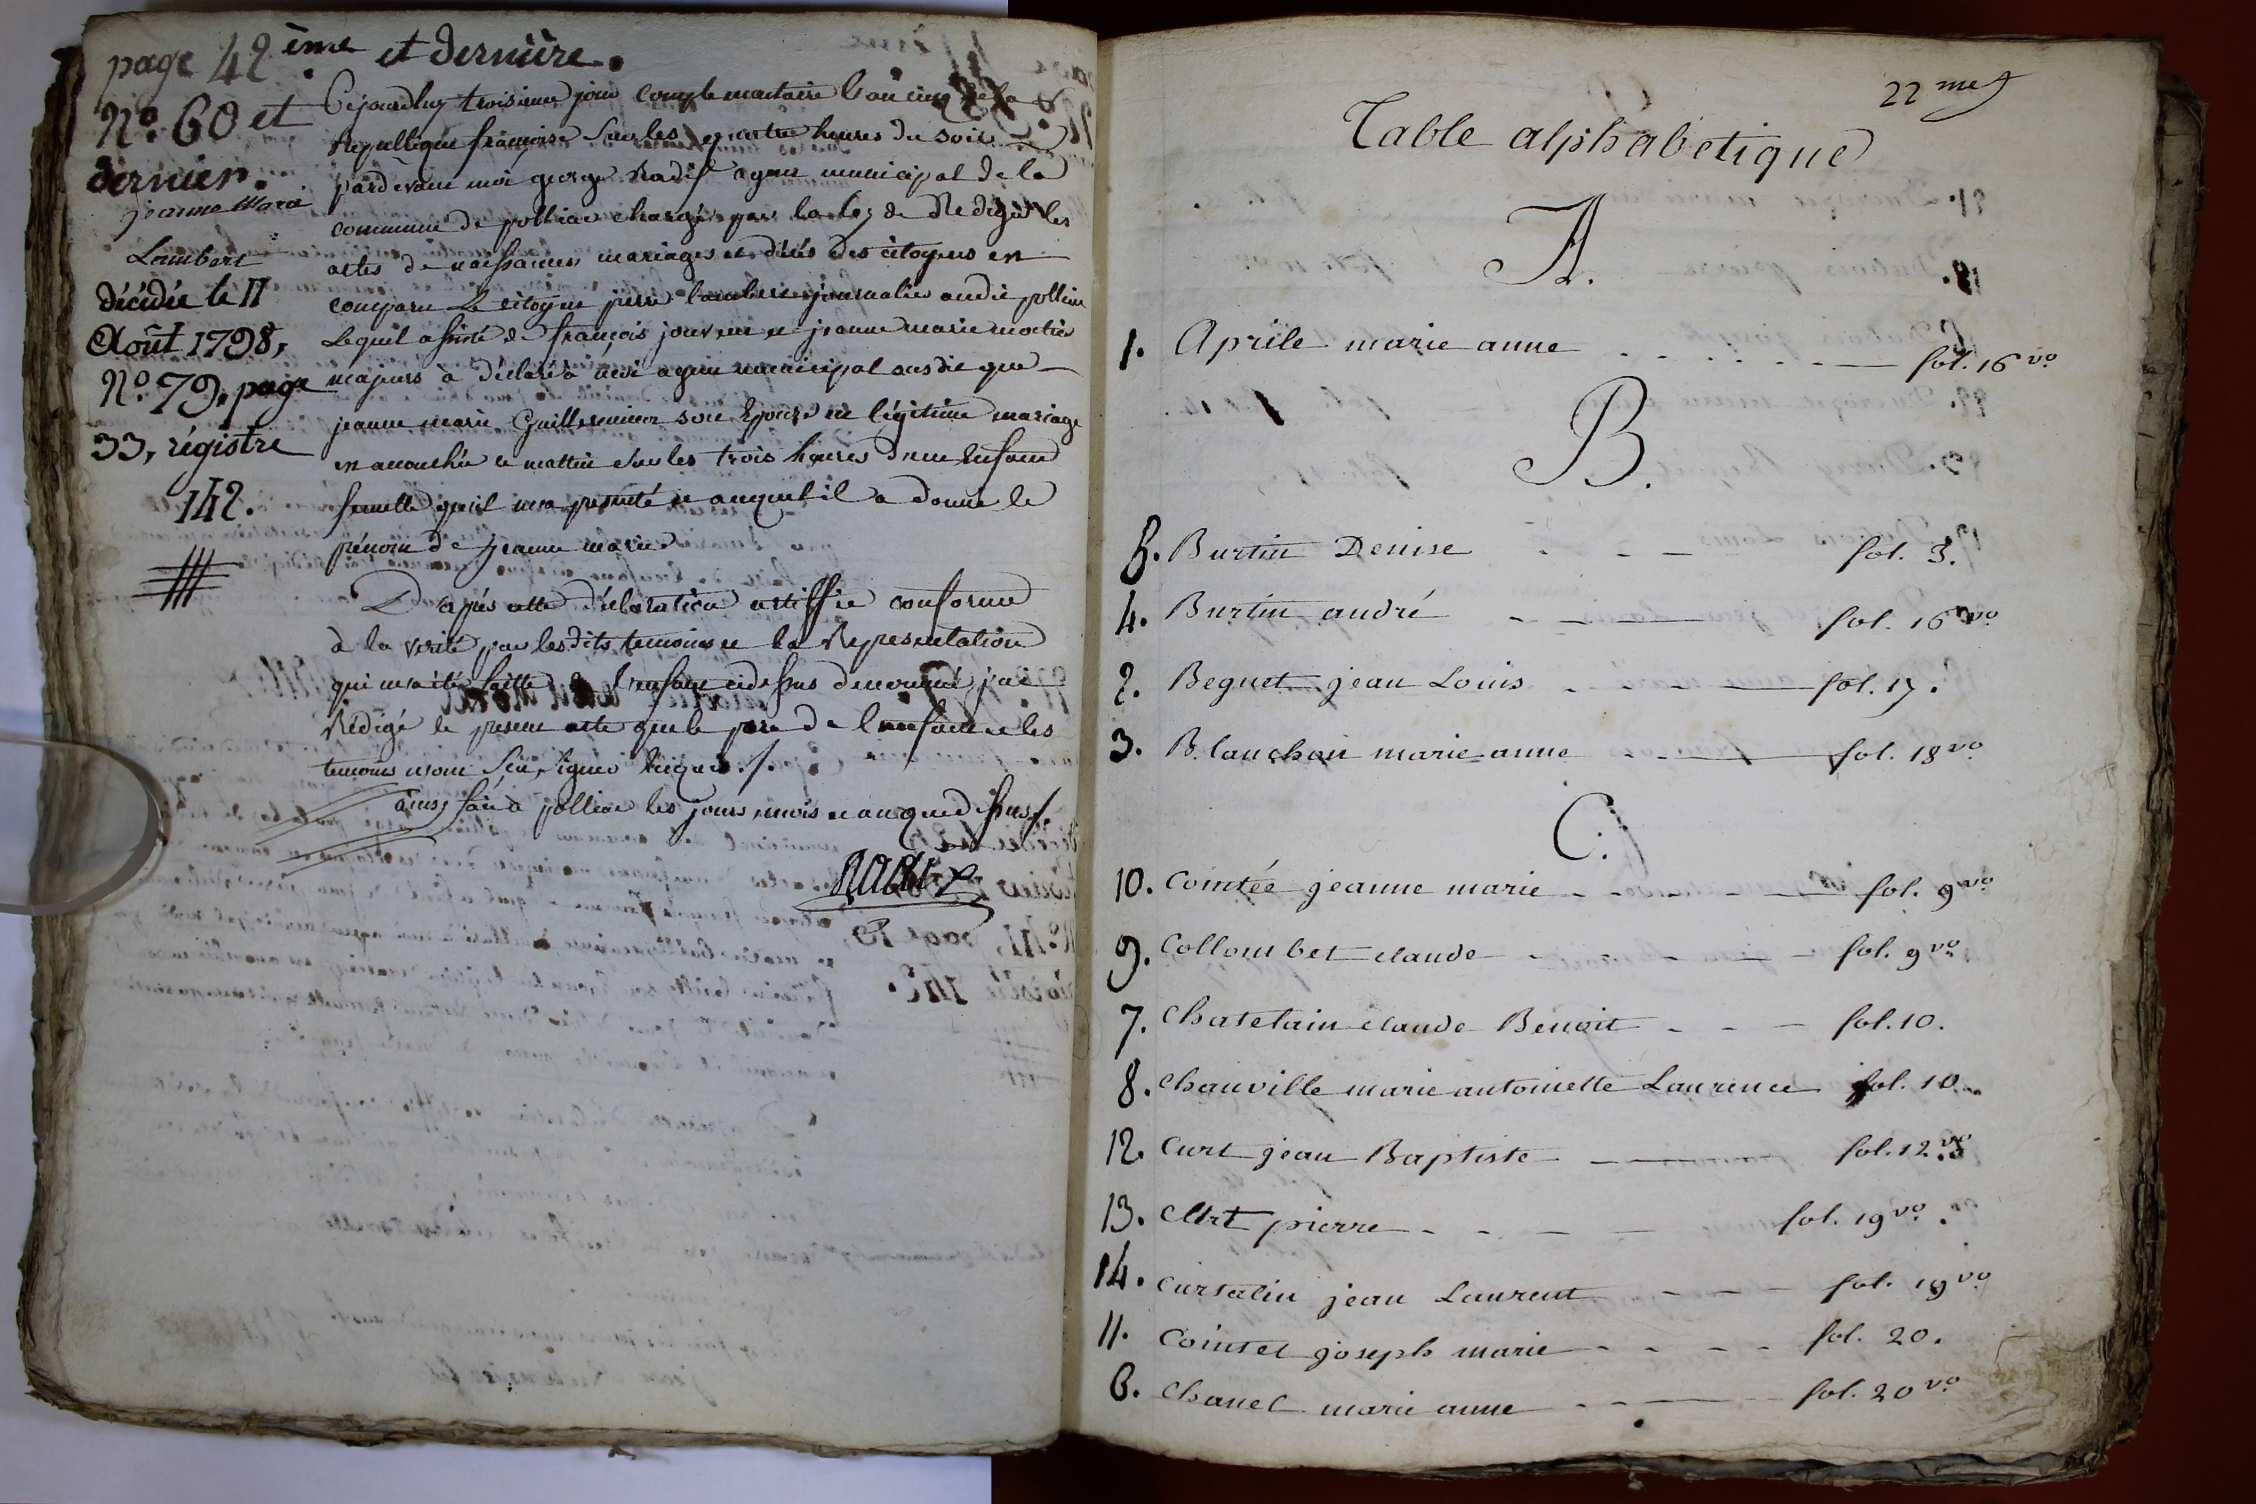 page 42 ème et dernière.
No. 60 et
dernier.
jeanne Marie
Lambert
décédée le 11
Août 1798,
No. 79, page
33, régistre
142.
Cejourdhuy troisieme jour complementaire l'an cinq de la
Republique françoise sur les quatre heures du soir
pardevant moi george Radix agent municipal de la
commune de polliat chargé par la loy de Rediger les
actes de naissances mariages et décés des citoyens est
comparu Le citoyen pierre lambert journalier audit polliat
Lequel assisté de françois jouvent et jeanne marie
majeurs à déclaré à moi agent municipal susdit que
jeanne marie Guillerminer son Epouse en légitime mariage
est accouchée ce mattin sur les trois heures d'une Enfant
femelle quil ma presenté et auquel il a donné le
prénom de jeanne marie
D'après cette déclaration certiffiée conforme
à la verité par lesdits temoins et la Representation
qui m'a été faitte de l'enfant cidessus denommé, j'ai
Rédigé le present acte que le pere de l'enfant et les
temoins n'ont sçu signer Requis ./.
ainsy fait à polliat les jours, mois et an que dessus /.
Radix
22 me
Table alphabetique
A.
1. Aprile marie anne fol. 16 vo.
B.
5. Burtin Denise fol. 3.
4. Burtin andré fol. 16 vo.
2. Beguet jean Louis fol. 17.
3. Blanchon marie anne fol. 18 vo.
C.
10. Cointée jeanne marie fol. 9 vo.
9. Collombet claude fol. 9 vo.
7. Chatelain claude Benoit fol. 10.
8. Chanville marie antoinette Laurence fol. 10.
12. Curt jean Baptiste fol. 12 vo.
13. Curt pierre fol. 19 vo.
14. Curtalin jean Laurent fol. 19 vo.
11. Cointet joseph marie fol. 20.
6. Chanel marie anne fol. 20 vo.